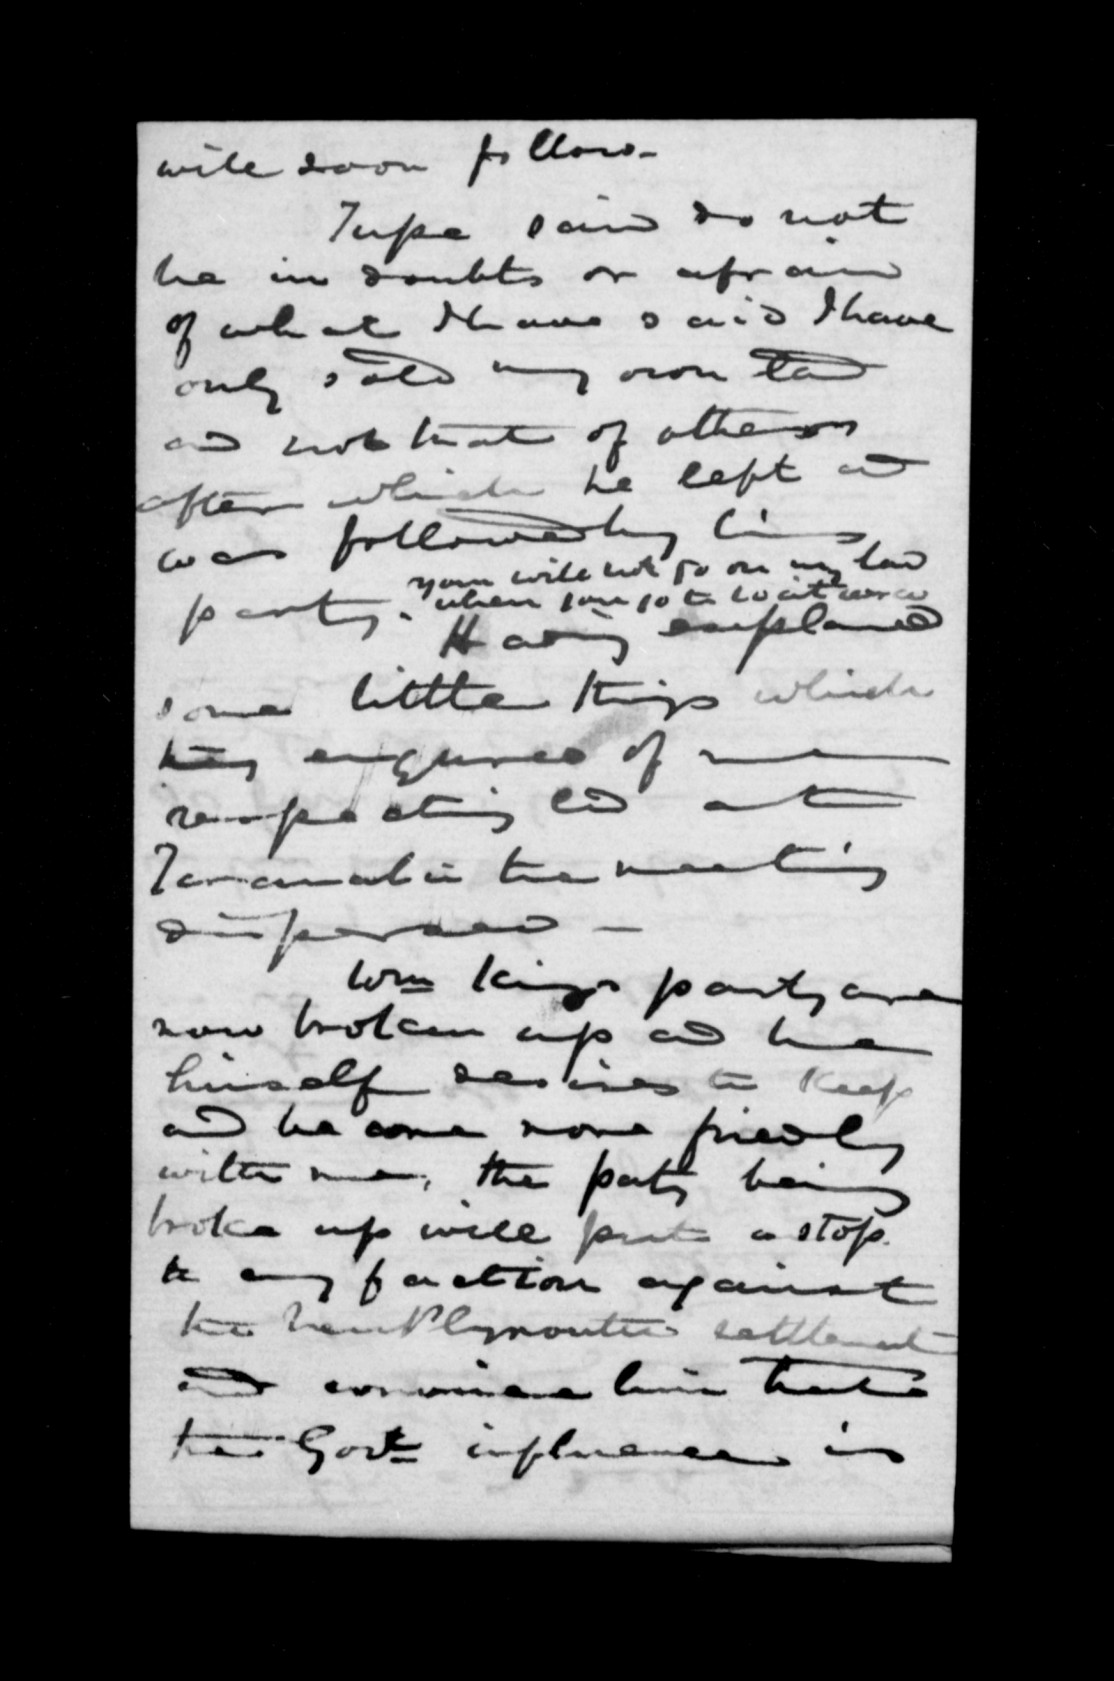 will soon follow -
Tupe said do not
be in doubts or afraid
of what I have said I have
only sold my own land
and not that of others
after which he left and
was followed by his
party. your will not go on my land
when you go to Waitara
Having explained
some little things which
they enquired of me
respecting land at
Taranaki the meeting
dispersed -
Wm Kings party are
now broken up and he
himself desires to keep
and become more friendly
with me, the party being
broke up will put a stop
to any faction against
the New Plymouth settlement
and convince him that
the Govt influence is